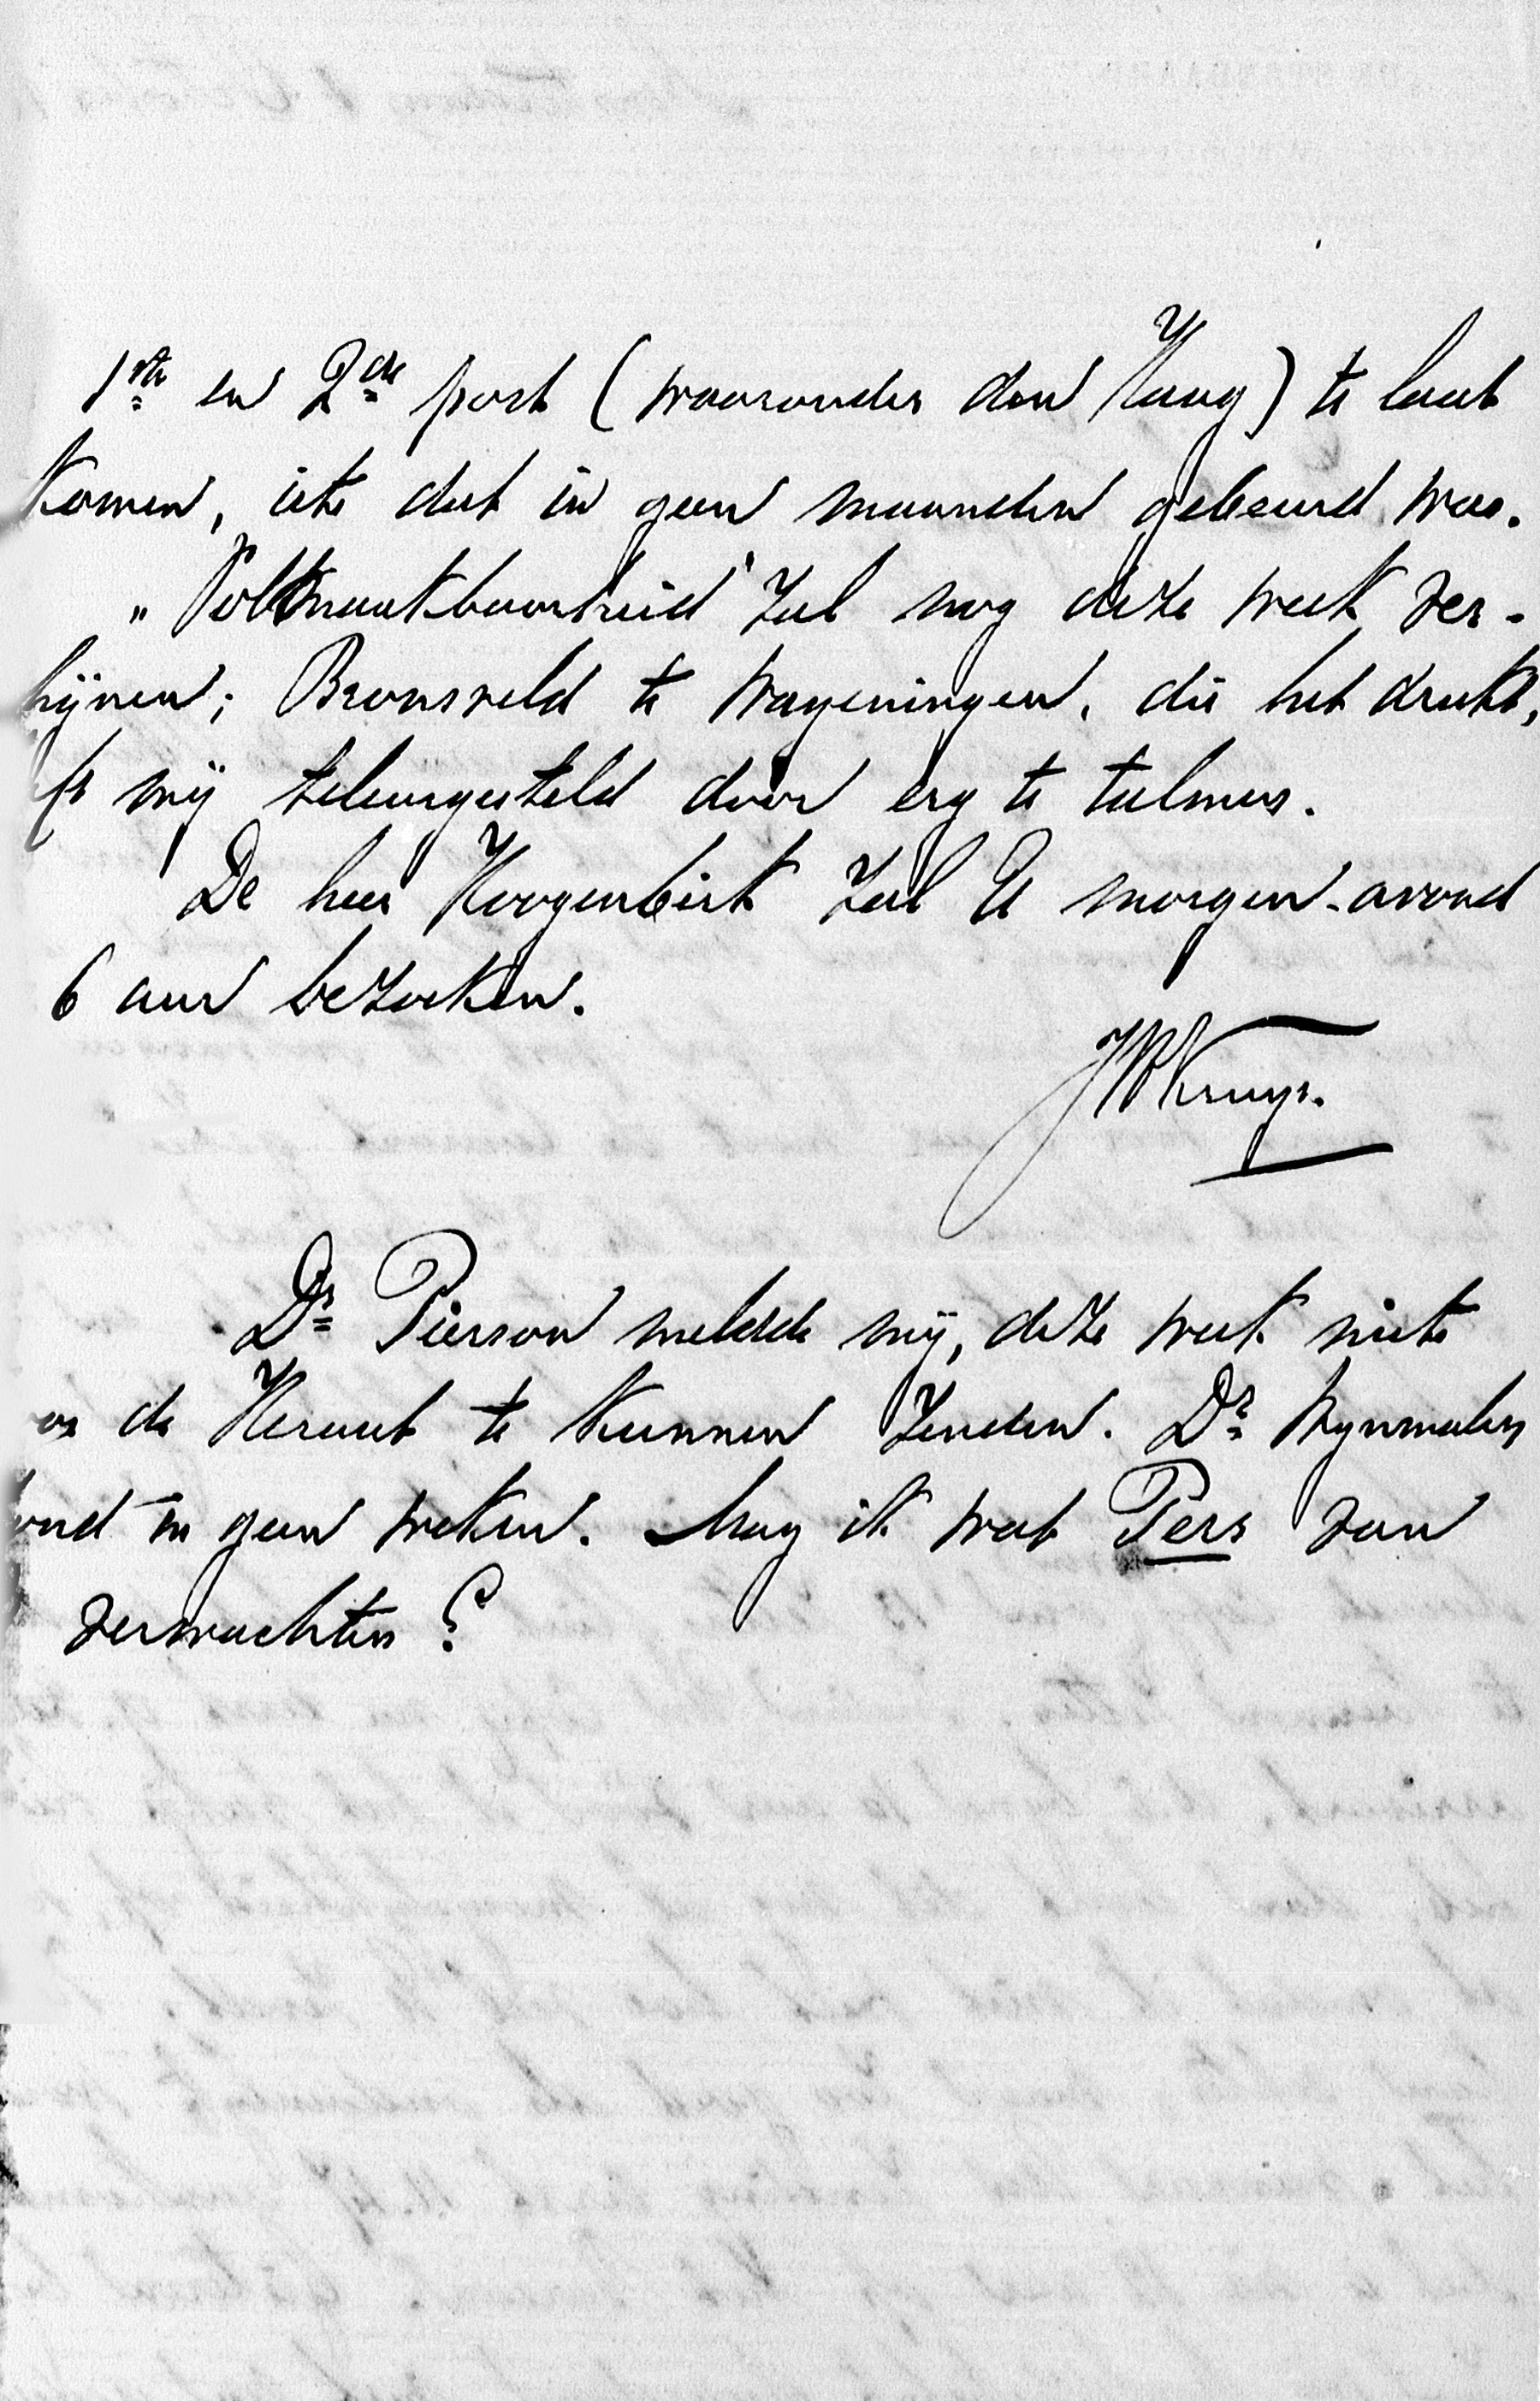 1ste en 2de post (waaronder den Haag) te laat
komen, iets dat in geen maanden gebeurd was.
„Volmaaktbaarheid" zal nog deze week ver-
hijnen; Bronsveld te Wageningen, die het drukt,
eft mij teleurgesteld door erg te talmen.
De heer Hoogenbirk zal U morgen-avond
6 uur bezoeken.
JWKruyt.
Dr Pierson meldde mij, deze week niets
de Heraut te kunnen zenden. Dr Wijnmalen
ond in geen weken. Mag ik wat Pers van
verwachten?